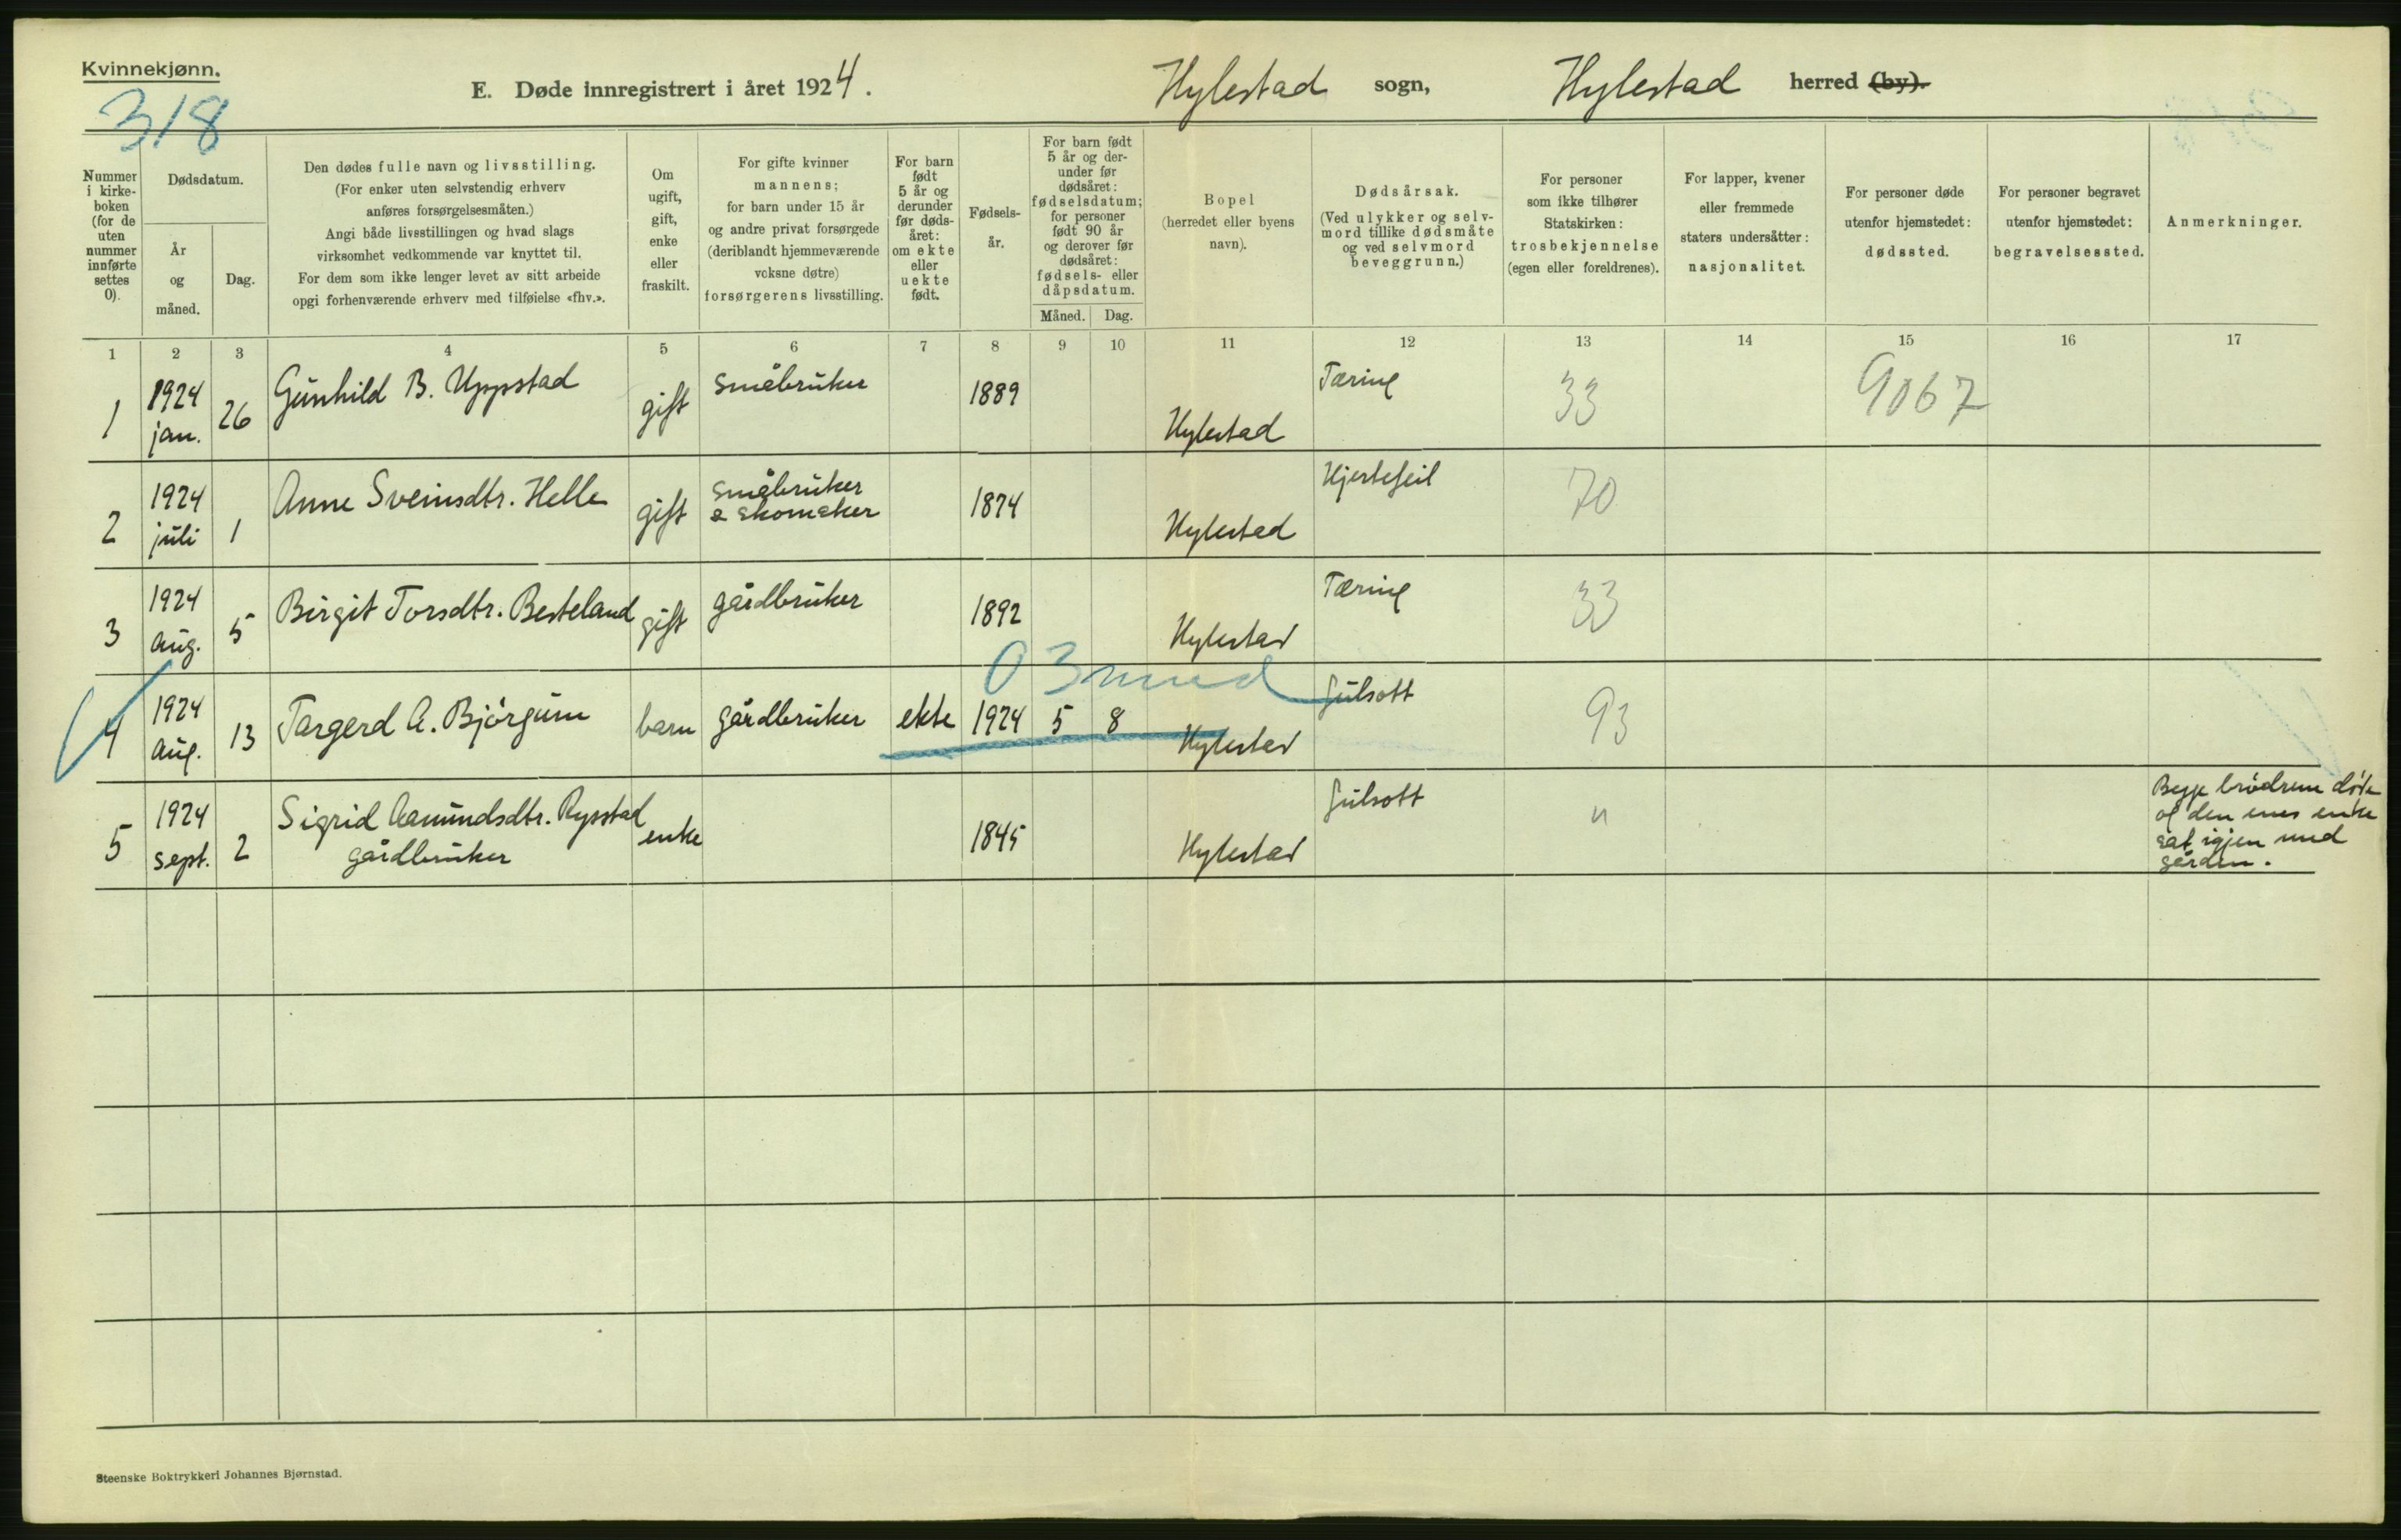 Kvinnekjønn.
318
E. Døde innregistrert i året 1924.
Hylestad sogn, Hylestad herred (by).
Nummer
i kirke-
boken
(for de
uten
nummer
innførte
settes
0).
Dødsdatum.
År
og
måned.
Dag.
Den dødes fulle navn og livsstilling.
(For enker uten selvstendig erhverv
anføres forsørgelsesmåten.)
Angi både livsstillingen og hvad slags
virksomhet vedkommende var knyttet til.
For dem som ikke lenger levet av sitt arbeide
opgi forhenværende erhverv med tilføielse «fhv.».
Om
ugift,
gift,
enke
eller
fraskilt.
For gifte kvinner
mannens;
for barn under 15 år
og andre privat forsørgede
(deriblandt hjemmeværende
voksne døtre)
forsørgerens livsstilling.
For barn
født
5 år og
derunder
før døds-
året:
om ekte
eller
uekte
født.
Fødsels-
år.
For barn født
5 år og der-
under før
dødsåret:
fødselsdatum;
for personer
født 90 år
og derover før
dødsåret:
fødsels- eller
dåpsdatum.
Måned. Dag.
Bopel
(herredet eller byens
navn).
Dødsårsak.
(Ved ulykker og selv-
mord tillike dødsmåte
og ved selvmord
beveggrunn.)
For personer
som ikke tilhører
Statskirken:
trosbekjennelse
(egen eller foreldrenes).
For lapper, kvener
eller fremmede
staters undersåtter:
nasjonalitet.
For personer døde
utenfor hjemstedet:
dødssted.
For personer begravet
utenfor hjemstedet:
begravelsessted.
Anmerkninger.
1 2 3 4 5 6 7 8 9 10 11 12 13 14 15 16 17
1 1924 jan. 26 Gunhild B. Uppstad gift småbruker 1889 Hylestad Tæring 33 9067
2 1924 juli 1 Anne Sveinsdtr. Helle gift småbruker
& skomaker 1874 Hylestad Hjertefeil 70
3 1924 aug. 5 Birgit Torsdtr. Besteland gift gårdbruker 1892 Hylestad Tæring 33
0 3 mnd
4 1924 aug. 13 Targerd A. Bjørgum barn gårdbruker ekte 1924 5 8 Hylestad Gulsott 93
5 1924 sept. 2 Sigrid Aamundsdtr. Rysstad
gårdbruker enke 1845 Hylestad Gulsott "
Begge brødrene døde
og den enes enke
sat igjen med
gården.
Steenske Boktrykkeri Johannes Bjørnstad.